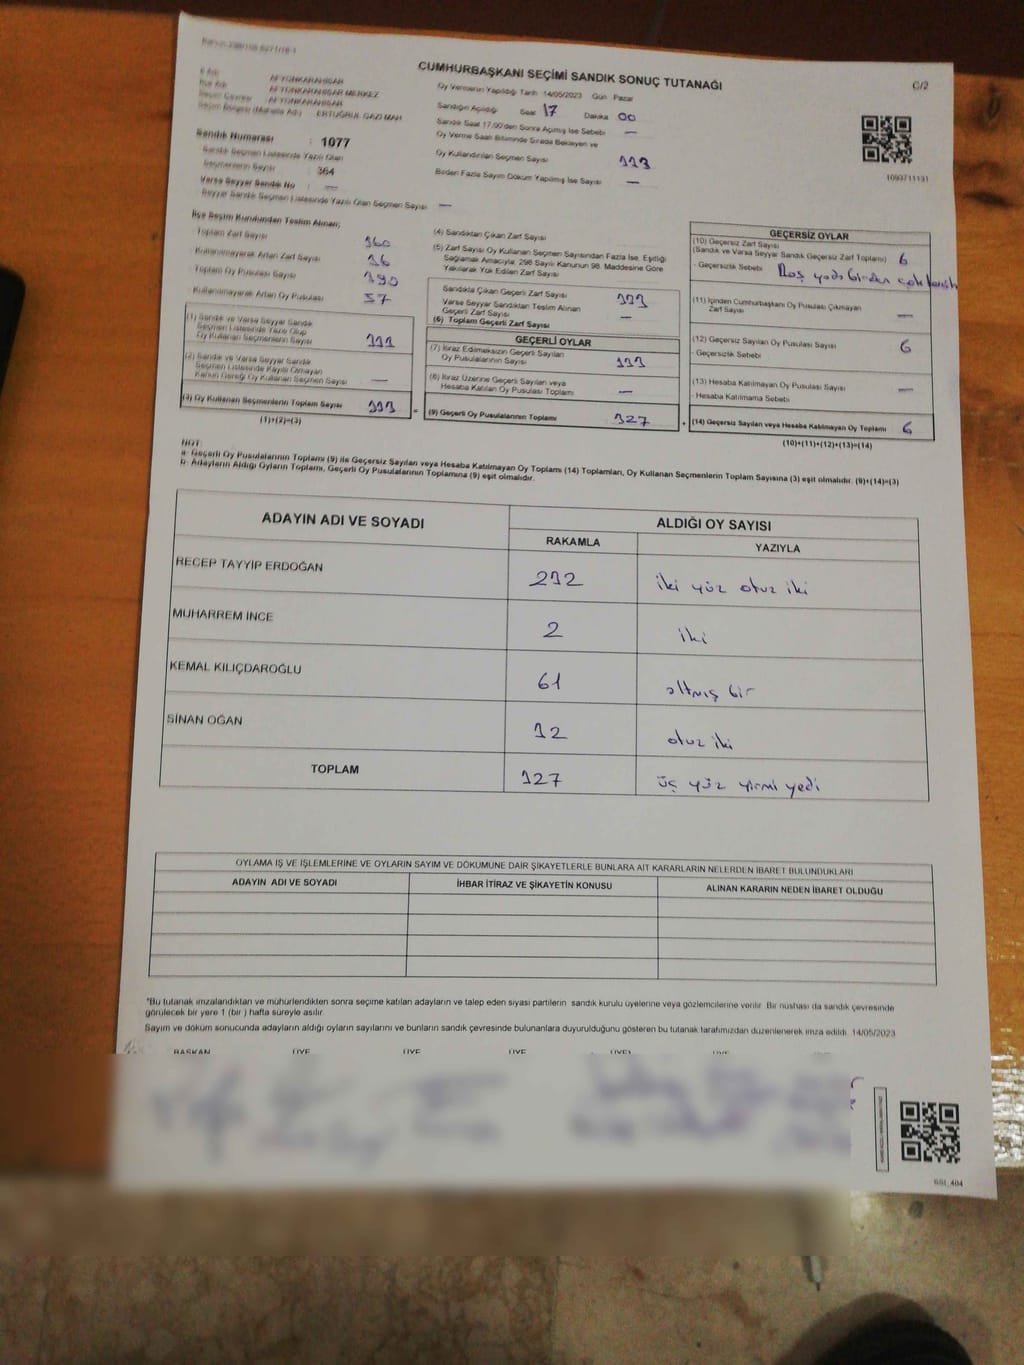 CUMHURBAŞKANI SEÇİMİ SANDIK SONUÇ TUTANAĞI
C/2
İl Adı : AFYONKARAHİSAR
İlçe Adı : AFYONKARAHİSAR MERKEZ
Seçim Çevresi : AFYONKARAHİSAR
Seçim Bölgesi (Mahalle Adı) : ERTUĞRUL GAZİ MAH.
Sandık Numarası : 1077
Sandık Seçmen Listesinde Yazılı Olan
Seçmenlerin Sayısı : 364
Varsa Seyyar Sandık No : —
Seyyar Sandık Seçmen Listesinde Yazılı Olan Seçmen Sayısı : —
Oy Vermenin Yapıldığı Tarih 14/05/2023 Gün Pazar
Sandığın Açıldığı Saat 17 Dakika 00
Sandık Saat 17.00'den Sonra Açılmış İse Sebebi —
Oy Verme Saati Bitiminde Sırada Bekleyen ve
Oy Kullandırılan Seçmen Sayısı 333
Birden Fazla Sayım Döküm Yapılmış İse Sayısı —
1093711131
İlçe Seçim Kurulundan Teslim Alınan;
Toplam Zarf Sayısı 360
Kullanılmayarak Artan Zarf Sayısı 36
Toplam Oy Pusulası Sayısı 390
Kullanılmayarak Artan Oy Pusulası 57
(1) Sandık ve Varsa Seyyar Sandık
Seçmen Listesinde Yazılı Olup
Oy Kullanan Seçmenlerin Sayısı 333
(2) Sandık ve Varsa Seyyar Sandık
Seçmen Listesinde Kayıtlı Olmayan
Kanun Gereği Oy Kullanan Seçmen Sayısı —
(3) Oy Kullanan Seçmenlerin Toplam Sayısı 333
(1)+(2)=(3)
(4) Sandıktan Çıkan Zarf Sayısı
(5) Zarf Sayısı Oy Kullanan Seçmen Sayısından Fazla İse, Eşitliği
Sağlamak Amacıyla; 298 Sayılı Kanunun 98. Maddesine Göre
Yakılarak Yok Edilen Zarf Sayısı
Sandıkta Çıkan Geçerli Zarf Sayısı 333
Varsa Seyyar Sandıktan Teslim Alınan
Geçerli Zarf Sayısı —
(6) Toplam Geçerli Zarf Sayısı
GEÇERLİ OYLAR
(7) İtiraz Edilmeksizin Geçerli Sayılan
Oy Pusulalarının Sayısı 333
(8) İtiraz Üzerine Geçerli Sayılan veya
Hesaba Katılan Oy Pusulası Toplamı —
= (9) Geçerli Oy Pusulalarının Toplamı 327
GEÇERSİZ OYLAR
(10) Geçersiz Zarf Sayısı
(Sandık ve Varsa Seyyar Sandık Geçersiz Zarf Toplamı) 6
- Geçersizlik Sebebi Boş yada birden çok
(11) İçinden Cumhurbaşkanı Oy Pusulası Çıkmayan
Zarf Sayısı —
(12) Geçersiz Sayılan Oy Pusulası Sayısı 6
- Geçersizlik Sebebi
(13) Hesaba Katılmayan Oy Pusulası Sayısı —
- Hesaba Katılmama Sebebi
+ (14) Geçersiz Sayılan veya Hesaba Katılmayan Oy Toplamı 6
(10)+(11)+(12)+(13)=(14)
NOT:
a- Geçerli Oy Pusulalarının Toplamı (9) ile Geçersiz Sayılan veya Hesaba Katılmayan Oy Toplamı (14) Toplamları, Oy Kullanan Seçmenlerin Toplam Sayısına (3) eşit olmalıdır. (9)+(14)=(3)
b- Adayların Aldığı Oyların Toplamı, Geçerli Oy Pusulalarının Toplamına (9) eşit olmalıdır.
ADAYIN ADI VE SOYADI
ALDIĞI OY SAYISI
RAKAMLA YAZIYLA
RECEP TAYYİP ERDOĞAN 232 iki yüz otuz iki
MUHARREM İNCE 2 iki
KEMAL KILIÇDAROĞLU 61 altmış bir
SİNAN OĞAN 32 otuz iki
TOPLAM 327 üç yüz yirmi yedi
OYLAMA İŞ VE İŞLEMLERİNE VE OYLARIN SAYIM VE DÖKÜMÜNE DAİR ŞİKAYETLERLE BUNLARA AİT KARARLARIN NELERDEN İBARET BULUNDUKLARI
ADAYIN ADI VE SOYADI İHBAR İTİRAZ VE ŞİKAYETİN KONUSU ALINAN KARARIN NEDEN İBARET OLDUĞU
*Bu tutanak imzalandıktan ve mühürlendikten sonra seçime katılan adayların ve talep eden siyasi partilerin sandık kurulu üyelerine veya gözlemcilerine verilir. Bir nüshası da sandık çevresinde
görülecek bir yere 1 (bir ) hafta süreyle asılır.
Sayım ve döküm sonucunda adayların aldığı oyların sayılarını ve bunların sandık çevresinde bulunanlara duyurulduğunu gösteren bu tutanak tarafımızdan düzenlenerek imza edildi. 14/05/2023
BAŞKAN ÜYE ÜYE ÜYE ÜYE ÜYE